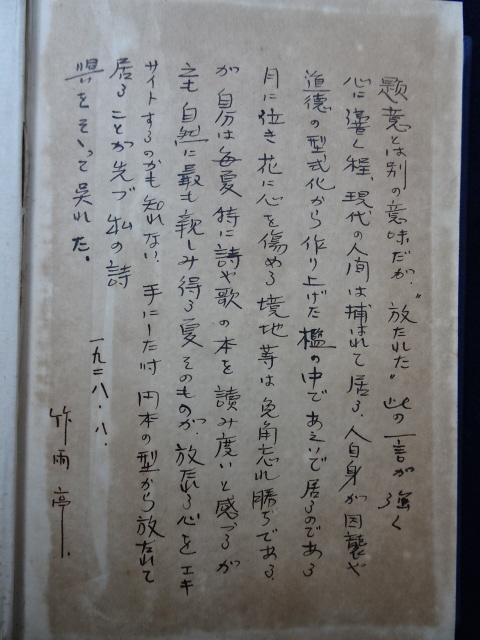 題意とは別の意味だが、"放たれた"此の一言が強く
心に響く程、現代の人間は捕はれて居る。人自身が因襲や
道徳の型式化から作り上げた檻の中であえいで居るのである
月に泣き花に心を傷める境地等は兎角忘れ勝ちである。
が自分は毎夏特に詩や歌の本を讀み度いと感づるが
之も自然に最も親しみ得る夏そのものが、放たれる心をエキ
サイトするのかも知れない。手にした時円本の型から放たれて
居ることが先づ私の詩
興をそゝって呉れた。
一九二八・八・
竹雨亭